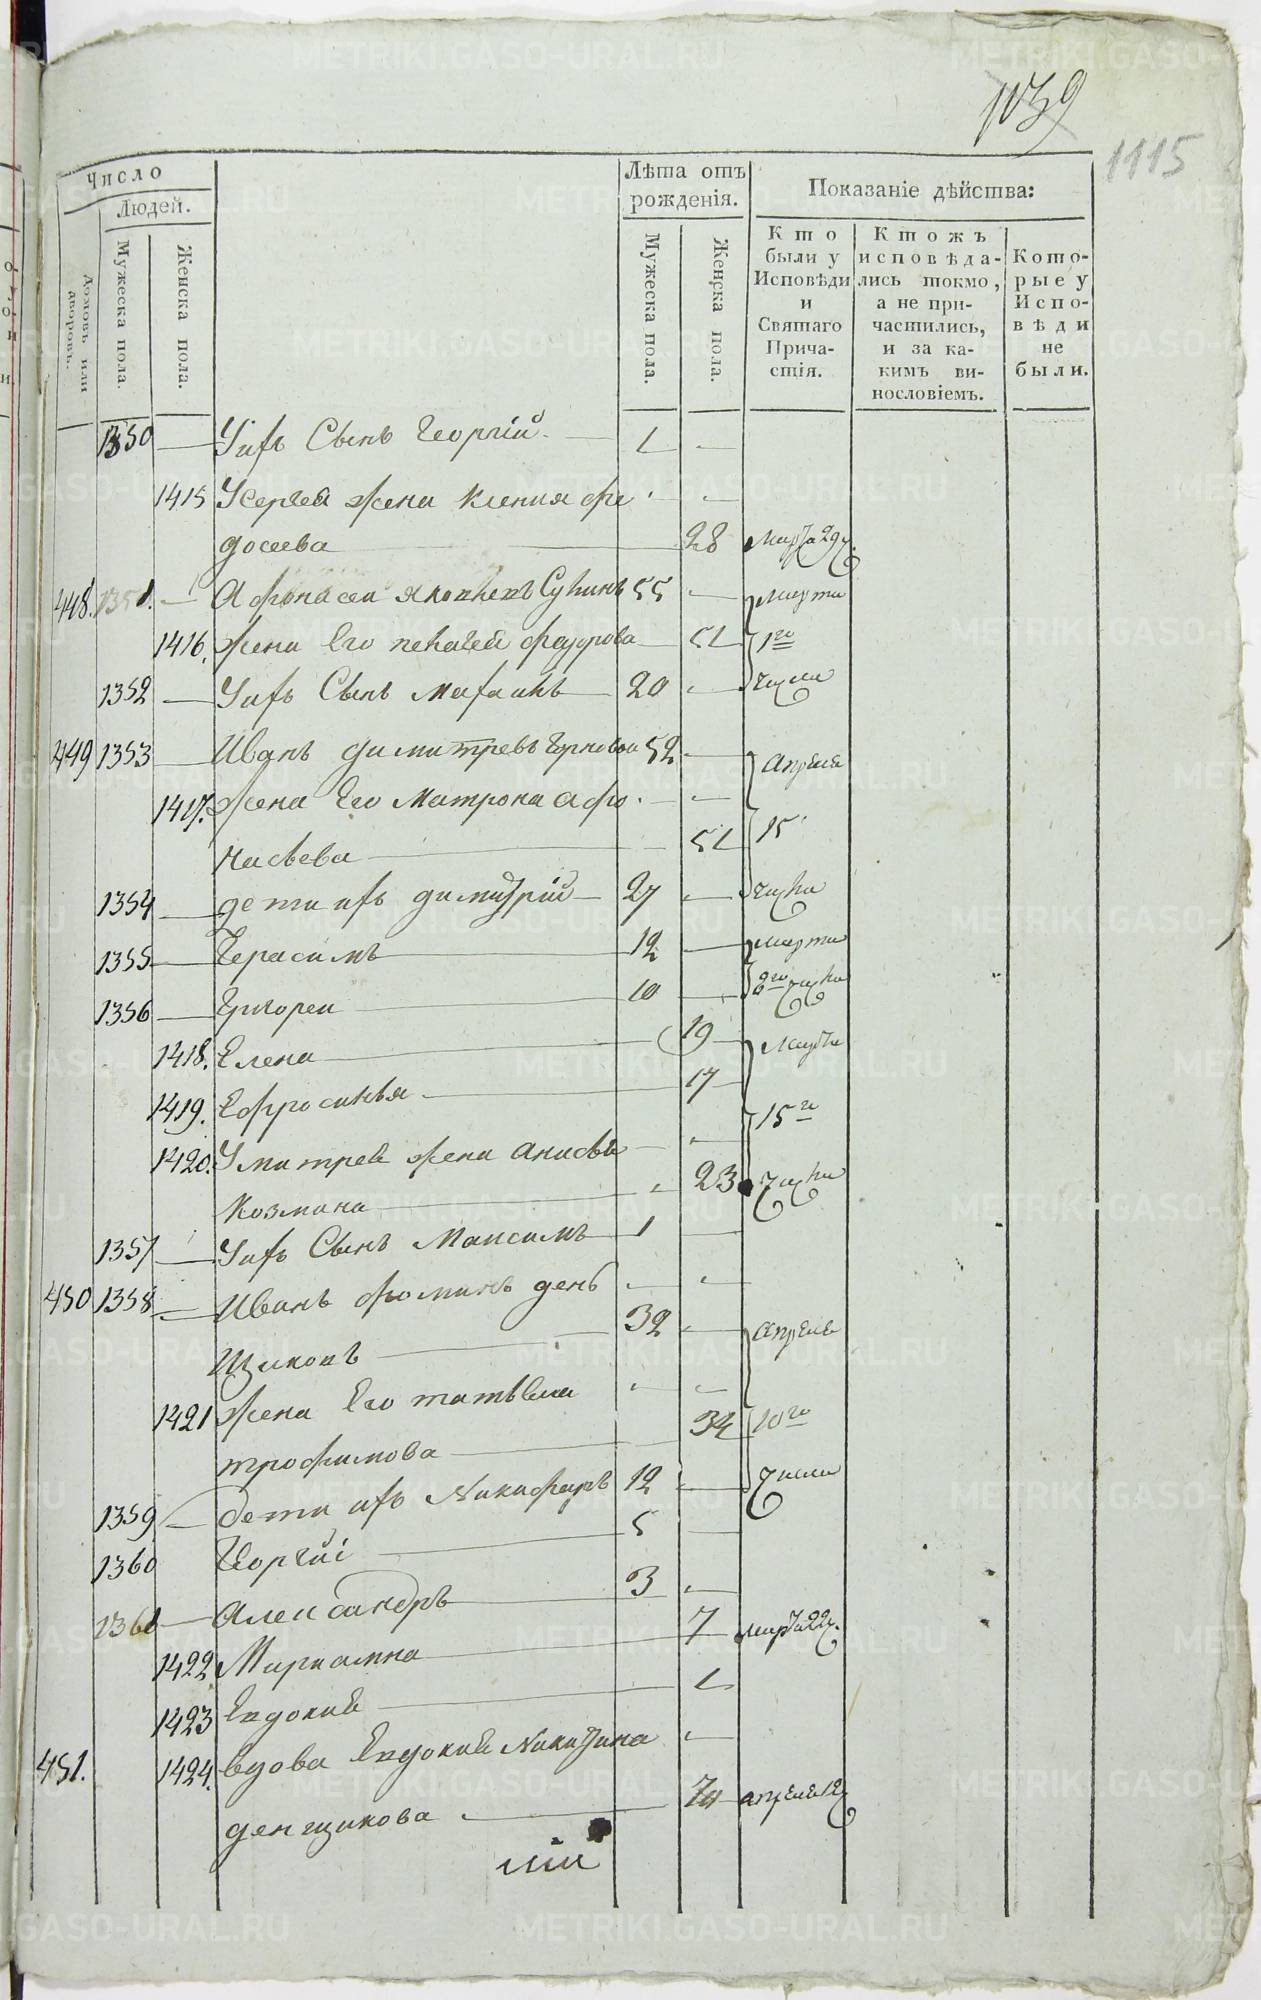 1039
1115
Число
Людей.
Домовъ или дворовъ.
Мужеска пола.
Женска пола.
Лѣта отъ рожденія.
Мужеска пола.
Женска пола.
Показаніе дѣйства:
Кто были у Исповѣди и Святаго Причастія.
Ктожъ исповѣдались токмо, а не причастились, и за какимъ винословіемъ.
Которые у Исповѣди не были.
1350 — Унихъ Сынъ Георгій — 1 —
1415 Усергея жена Ксения фе
досеева — 28 марта 29 ч.
448. 1351. — Афонасеи Яковлевъ 55 — марта
1416. жена Его Пелагея федорова — 51 1го
1352 — Унихъ Сынъ — 20 — числа
449 1353 — Иванъ димитревъ 52 — апреля
1417. жена Его Матрона афо
насьева — 51 15
1354 — дети ихъ димитрій — 27 — числа
1355 — Герасимъ — 12 — марта
1356 — Григореи — 10 — 2го числа
1418. Елена — 19 марта
1419. Ефросинья — 17 15го
1420. Умитрея жена анисья
Козмина — 23 числа
1357 — Унихъ Сынъ Максимъ — 1 —
450 1358 — Иванъ фоминъ ден
щиковъ — 32 — апреля
1421 жена Его татьяна
трофимова — 34 10го
1359 — дети ихъ Никифоръ 12 — числа
1360 Георгий — 5 —
1361 — Александръ — 3 —
1422 Мариамна — 7 марта 22 ч.
1423 Евдокия — 1
451. 1424. вдова Евдокия Никитина —
денщикова — 70 апреля 12
METRIKI.GASO-URAL.RU